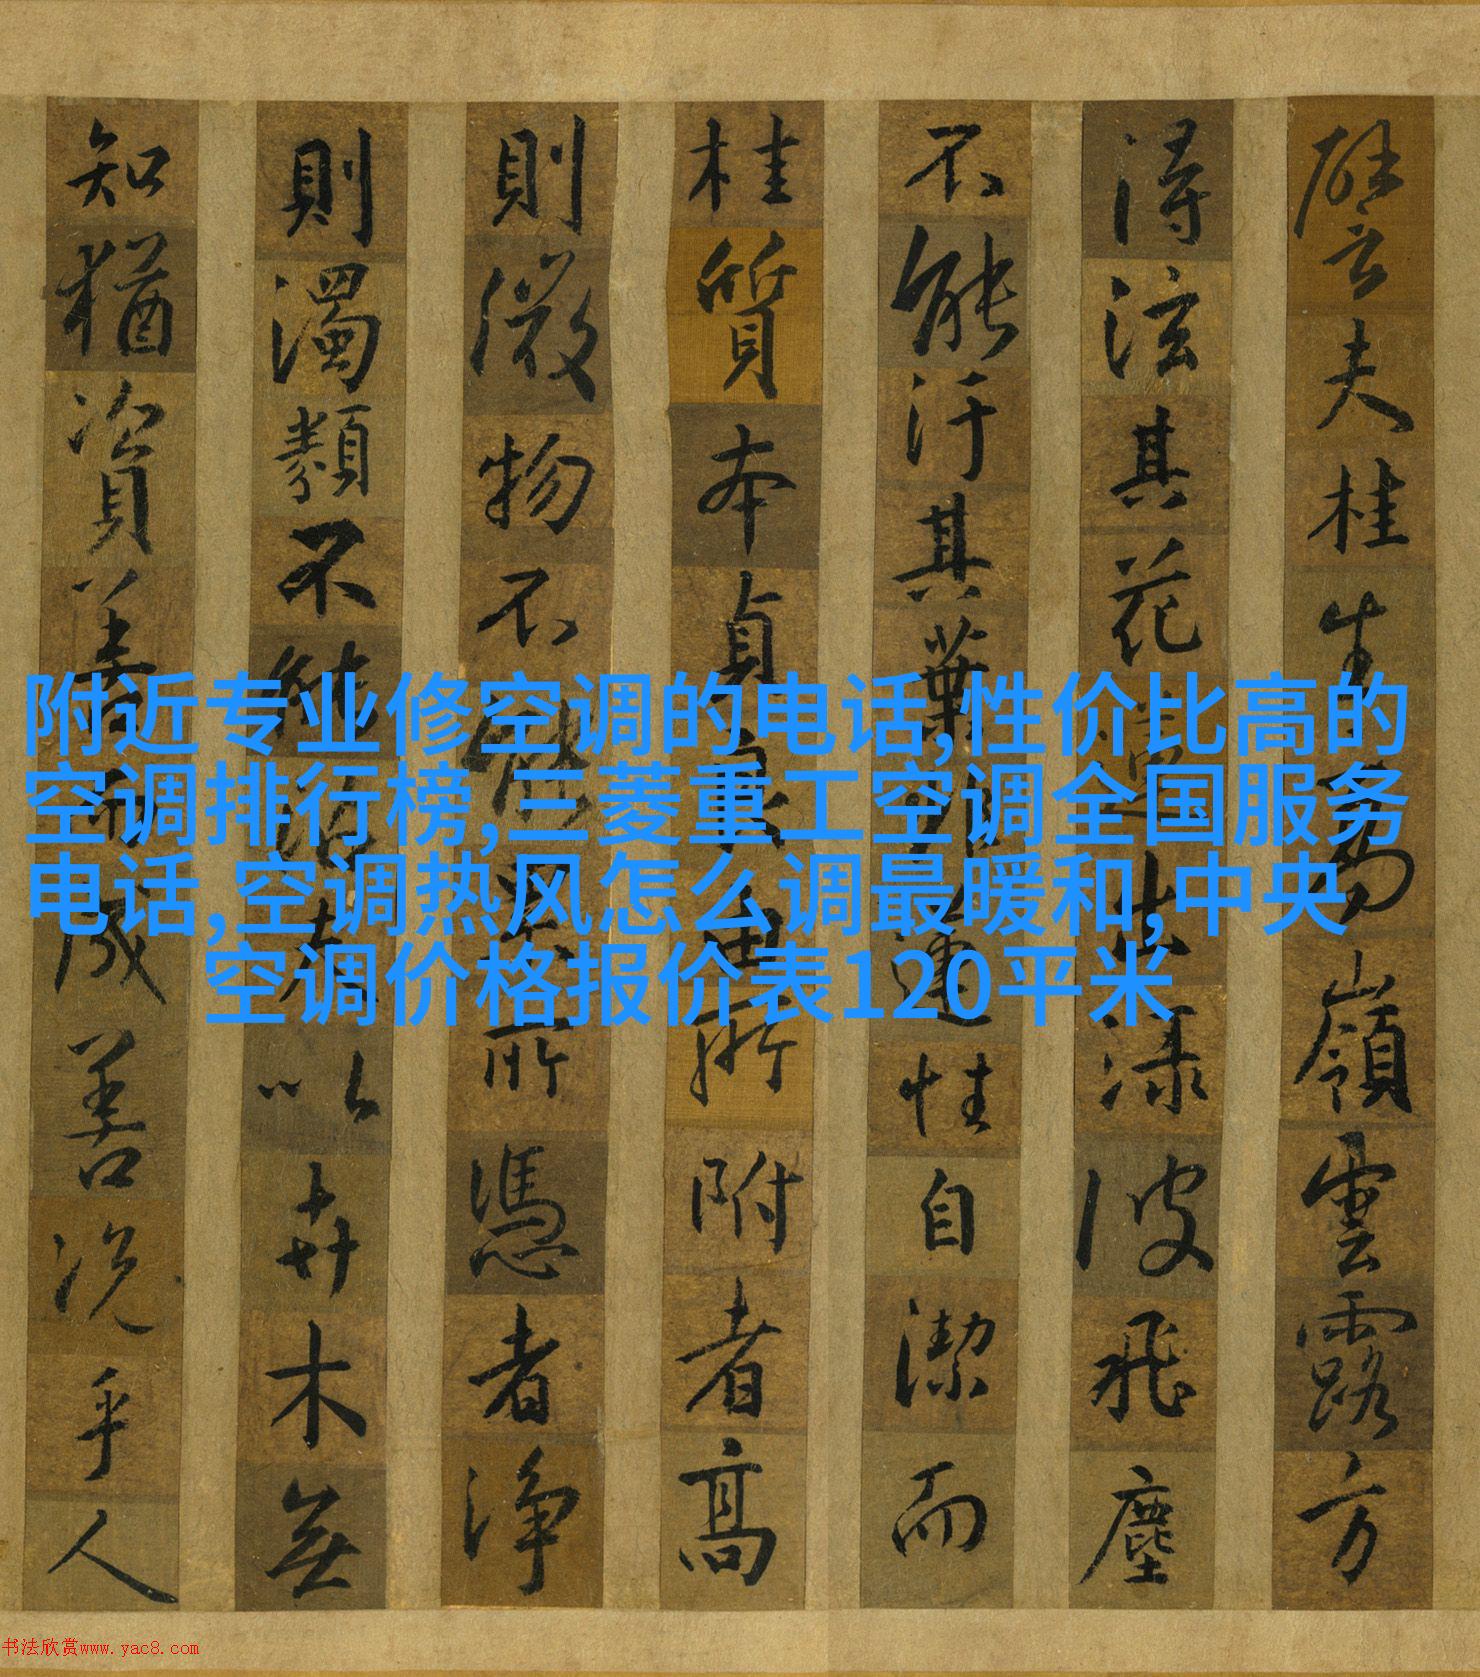 譬夫桂生高嶺雲露方
得泫其花蓮出淥波飛塵
不能汙其葉非蓮性自潔而
桂質本貞良由所附者高
則微物不能累所憑者淨
則濁類不能沾夫以卉木無
知猶資善而成善況乎人
附近专业修空调的电话,性价比高的
空调排行榜,三菱重工空调全国服务
电话,空调热风怎么调最暖和,中央
空调价格报价表120平米
书法欣赏www.yac8.com